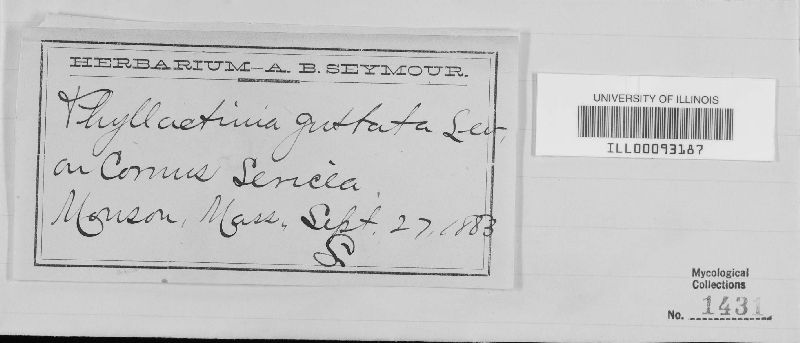 HERBARIUM—A. B. SEYMOUR.
Phyllactinia guttata Lev,
on Cornus Sericea
Monson, Mass., Sept. 27, 1883
S
UNIVERSITY OF ILLINOIS
ILL00093187
Mycological
Collections
No. 1431